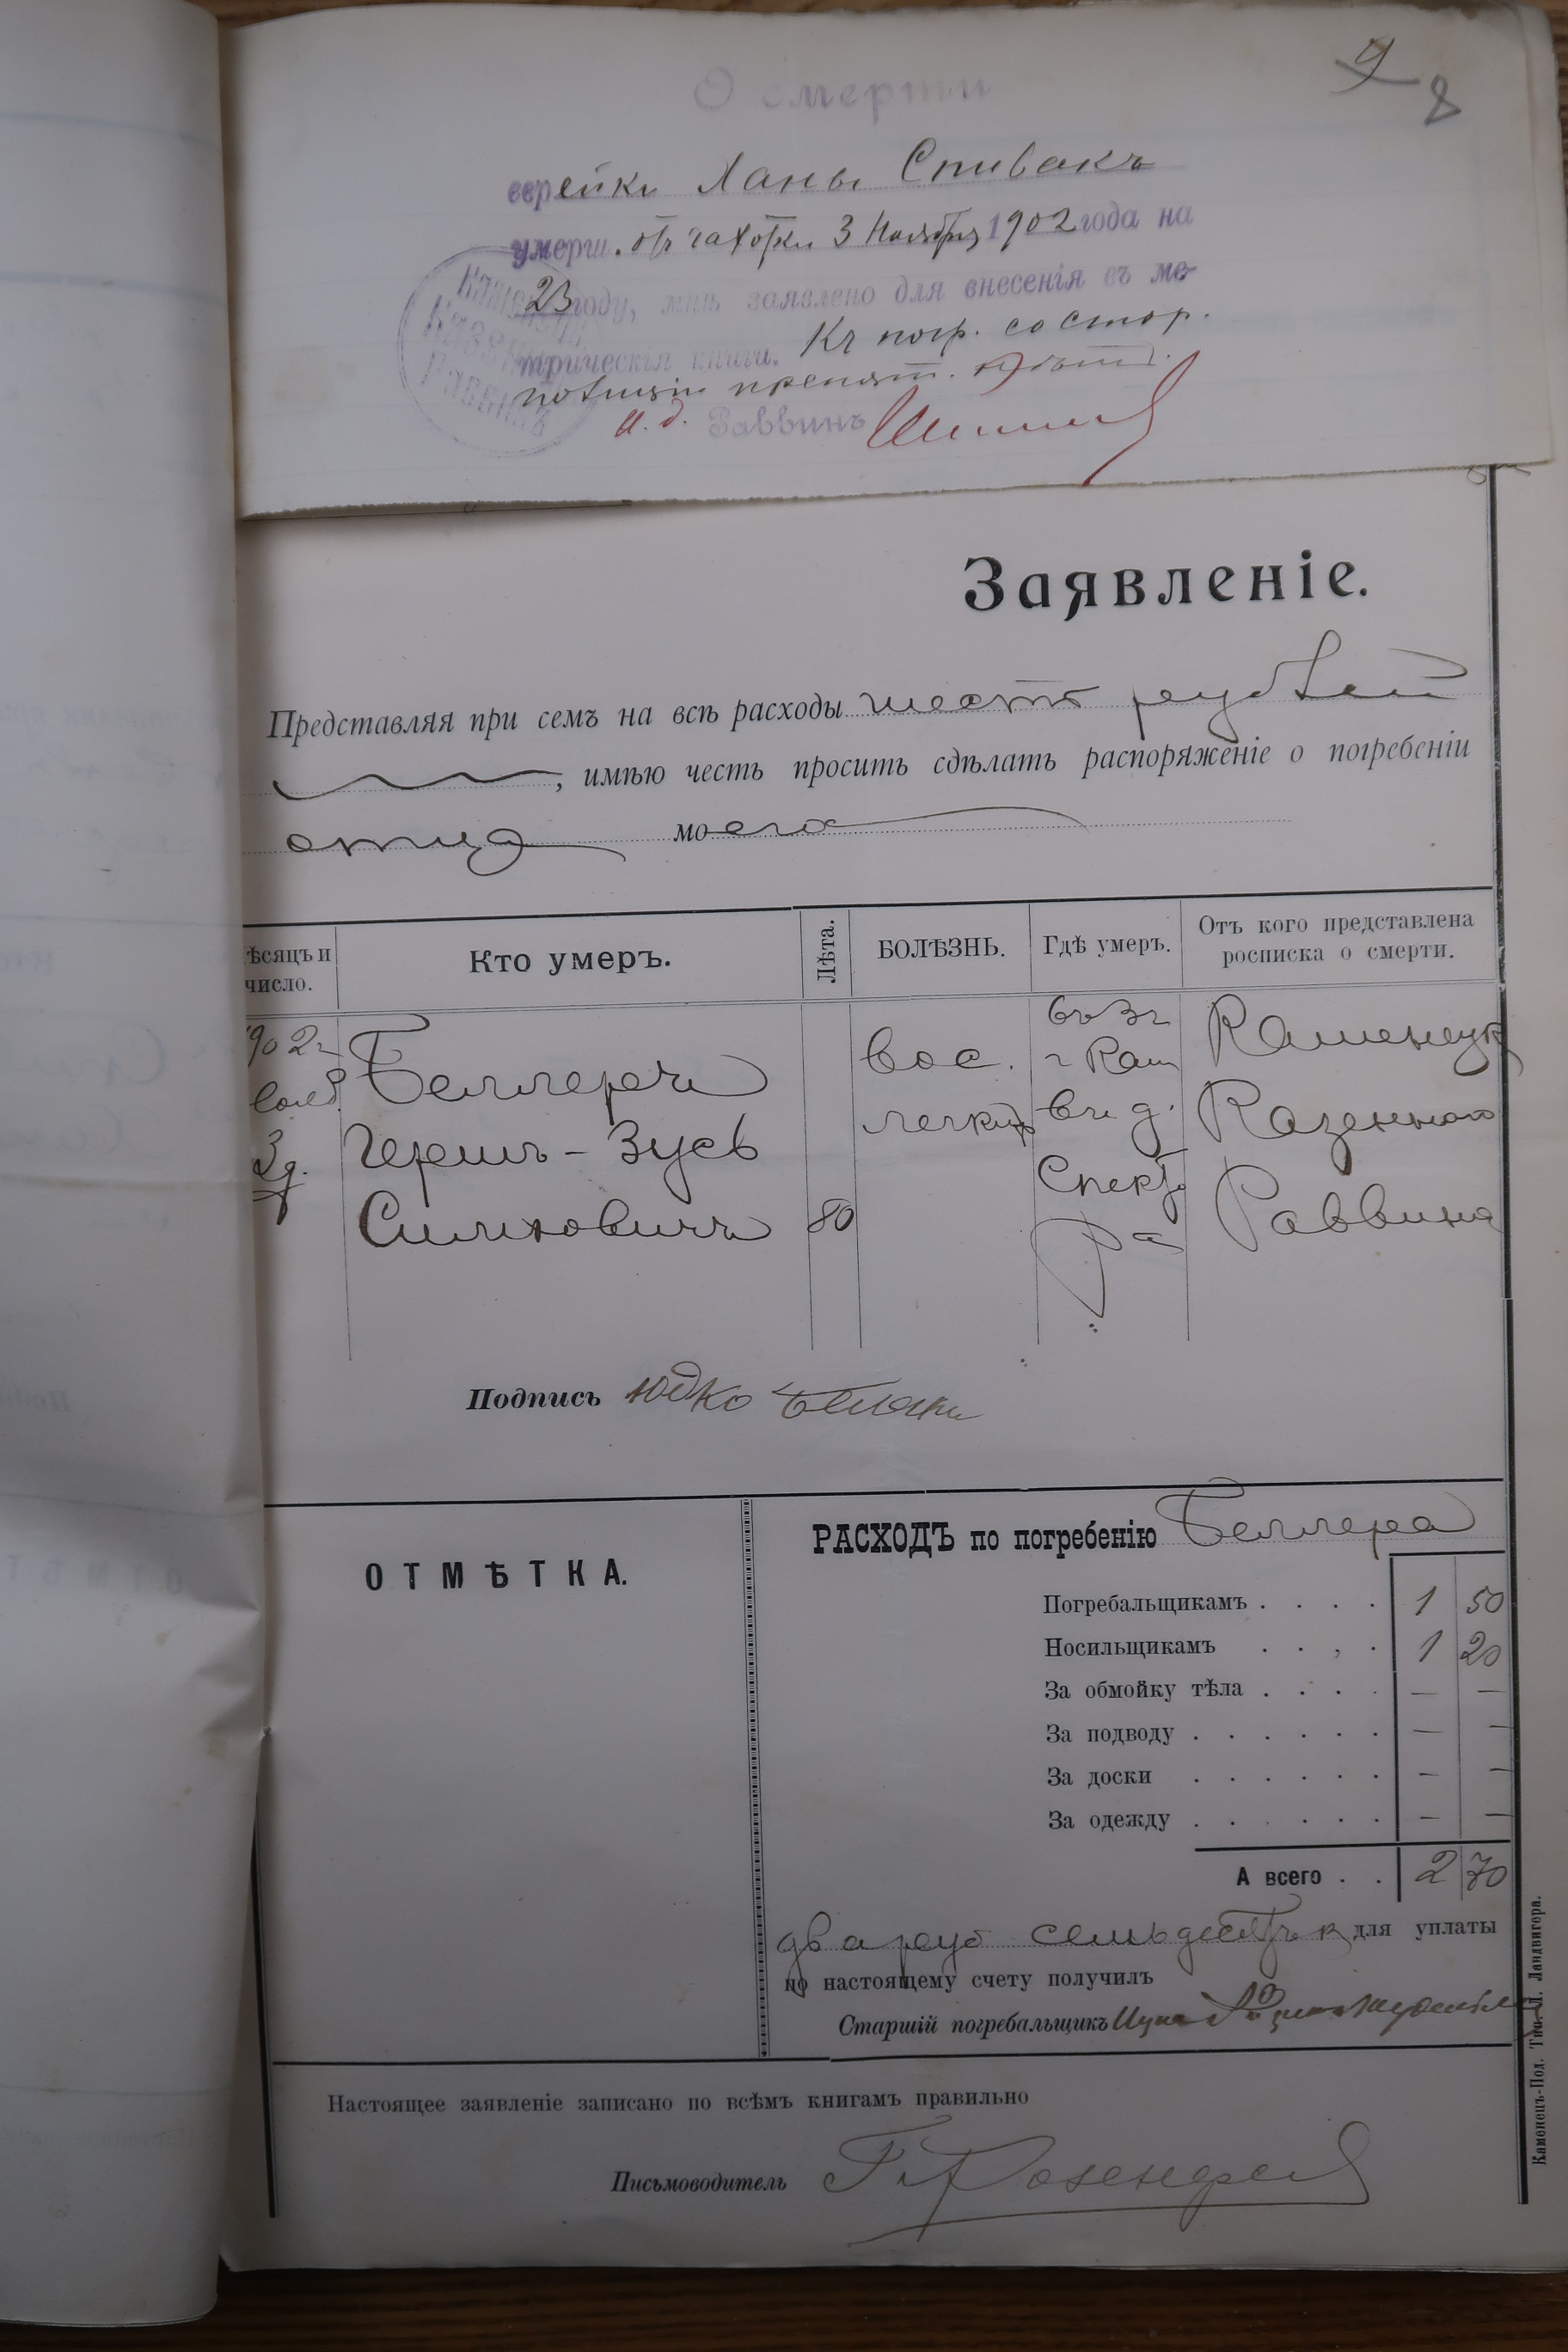 9
8
О смерти
еврейки Ханы Спивакъ
умерш. отъ чахотки 3 Ноября 1902 года на
23 году, мнѣ заявлено для внесенія въ ме-
трическія книги. Къ погр. со стор.
полиціи препят. нѣтъ.
и. д. Раввинъ
Каменецкій
Казенный
Раввинъ
Заявленіе.
Представляя при семъ на всѣ расходы шесть рублей
, имѣю честь просить сдѣлать распоряженіе о погребеніи
отца моего
ѣсяцъ и число.
Кто умеръ.
Лѣта.
БОЛѢЗНЬ.
Гдѣ умеръ.
Отъ кого представлена росписка о смерти.
902 г.
3 д.
Беллеръ
Гершъ-Зусь
Симховичъ
80
вос.
легкихъ
въ 3 ч
г Кам
въ д.
Спекто
ра
Каменецк
Казеннаго
Раввина
Подпись Юдко
ОТМѢТКА.
РАСХОДЪ по погребенію Беллера
Погребальщикамъ . . . . 1 50
Носильщикамъ . . , . 1 20
За обмойку тѣла . . . . — —
За подводу . . . . . . — —
За доски . . . . . . — —
За одежду . . . . . . — —
А всего . . 2 70
два руб семьдесятъ к для уплаты
по настоящему счету получилъ
Старшій погребальщикъ
Настоящее заявленіе записано по всѣмъ книгамъ правильно
Письмоводитель Г Розенфельд
Каменецъ-Под. Тип. Л. Ландвигера.